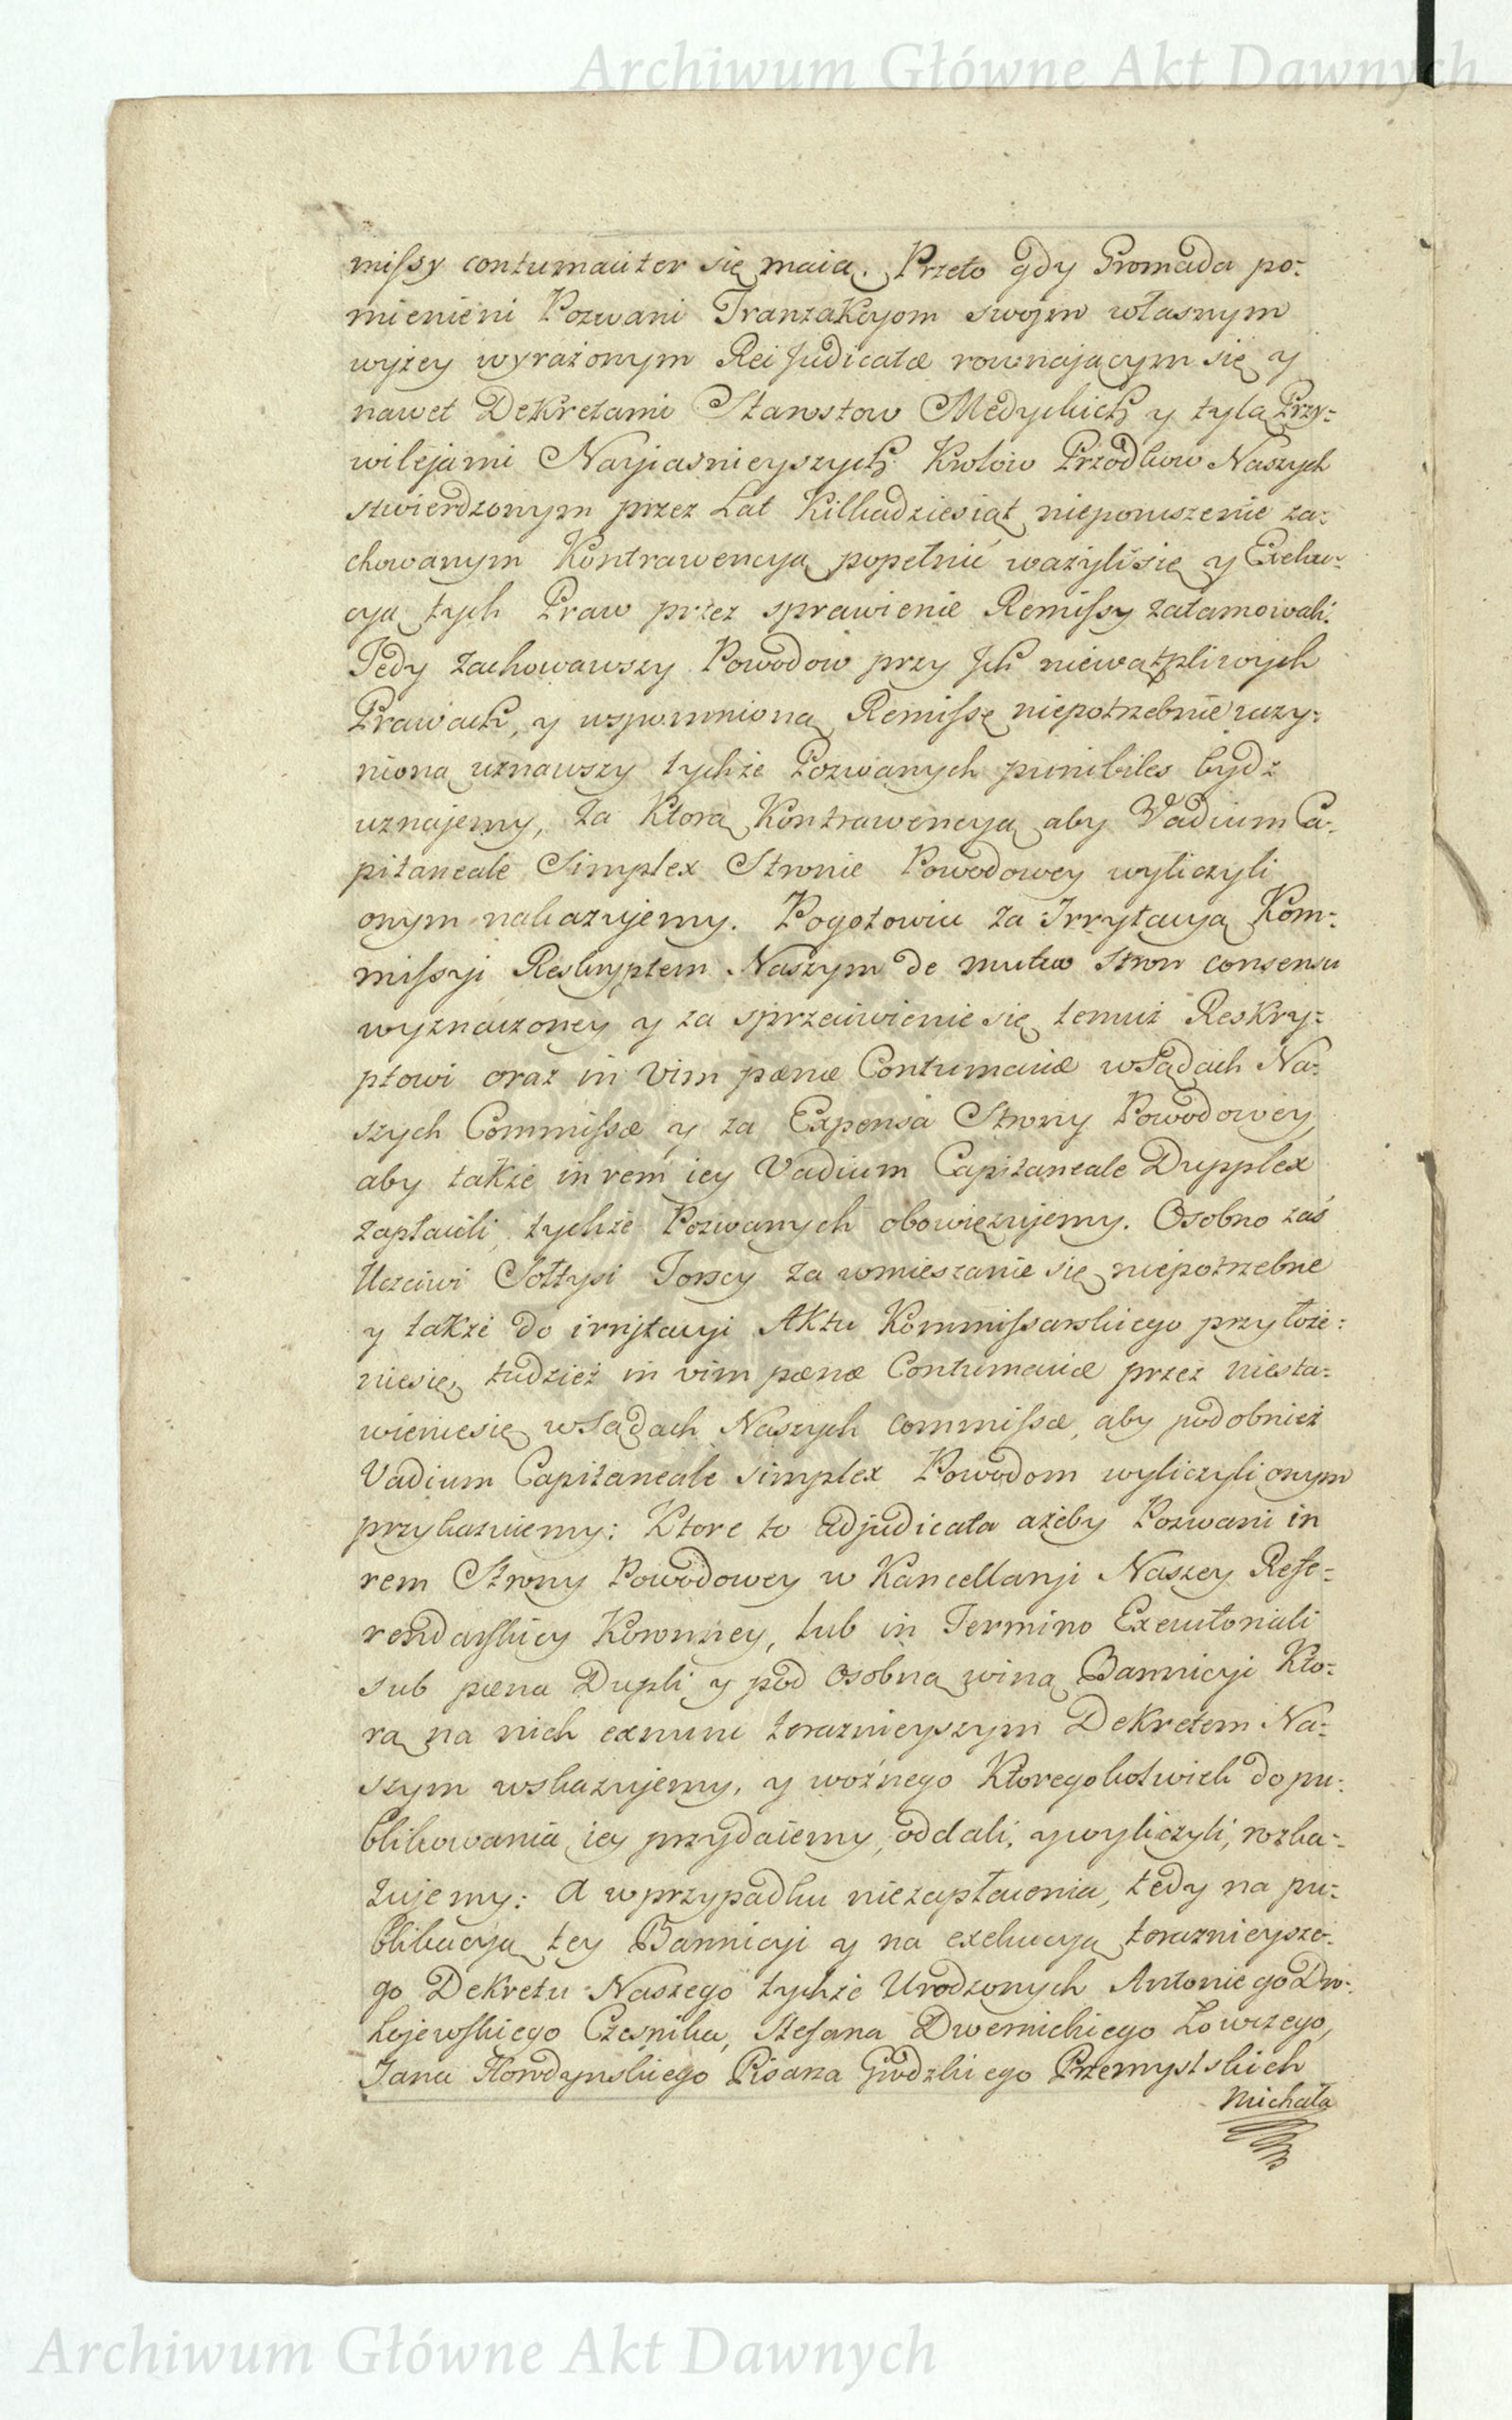 Archiwum Główne Akt Dawnych
missy contumaciter się maią. Przeto gdy Gromada po:
mienieni Pozwani Tranzakcyom swojm własnym
wyżey wyrażonym Rei Judicatæ rownającym się y
nawet Dekretami Starostow Medyckich y tylą Przy:
wilejami Nayjasnieyszych Krolów Przodkow Naszych
stwierdzonym przez Lat Kilkadziesiąt nieporuszenie za:
chowanym Kontrawencyą popełnić ważylisię y Exeku:
cyą tych Praw przez sprawienie Remissy zatamowali:
Tedy zachowawszy Powodow przy Jch niewątpliwych
Prawach, y uspomnioną Remissę niepotrzebnie uczy:
nioną uznawszy tychże Pozwanych punibiles bydz
uznajemy, za Ktorą Kontrawencyą aby Vadium Ca:
pitaneale Simplex Stronie Powodowey wyliczyli
onym nakazujemy. Pogotowiu za Irrytacyą Kom:
missyi Reskryptem Naszym de mutuo stron consensu
wyznaczoney y za sprzeciwienie się temuż Reskry:
ptowi oraz in vim pænæ Contumaciæ wSądach Na:
szych Commissæ y za Expensa Strony Powodowey
aby także in rem iey Vadium Capitaneale Dupplex
zapłacili, tychże Pozwanych obowięzujemy. Osobno zaś
Uczciwi Sołtysi Torscy za wmieszanie się niepotrzebne
y także do irrytacyi Aktu Kommissarskiego przyłoże:
niesię, tudzież in vim pænæ Contumaciæ przez niesta:
wieniesię wSądach Naszych commissæ, aby podobnież
Vadium Capitaneale simplex Powodom wyliczyli onym
przykazuiemy: Ktore to Adjudicata ażeby Pozwani in
rem Strony Powodowey w Kancellaryi Naszey Refe:
rendarskiey Koronney, lub in Termino Executoriali
sub pæna Dupli y pod osobną winą Bannicyi Kto:
rą na nich exnunc teraznieyszym Dekretem Na:
szym wskazujemy, y woźnego Ktoregokolwiek do pu:
blikowania iey przydaiemy, oddali, y wyliczyli, rozka:
zujemy: A wprzypadku niezapłacenia, tedy na pu:
blikacyą tey Bannicyi y na exekucyą terazniejsze:
go Dekretu Naszego tychże Urodzonych Antoniego Dro:
hojewskiego Czesnika, Stefana Dwernickiego Łowczego,
Jana Hordynskiego Pisarza Grodzkiego Przemyslskich
Michała
Archiwum Główne Akt Dawnych